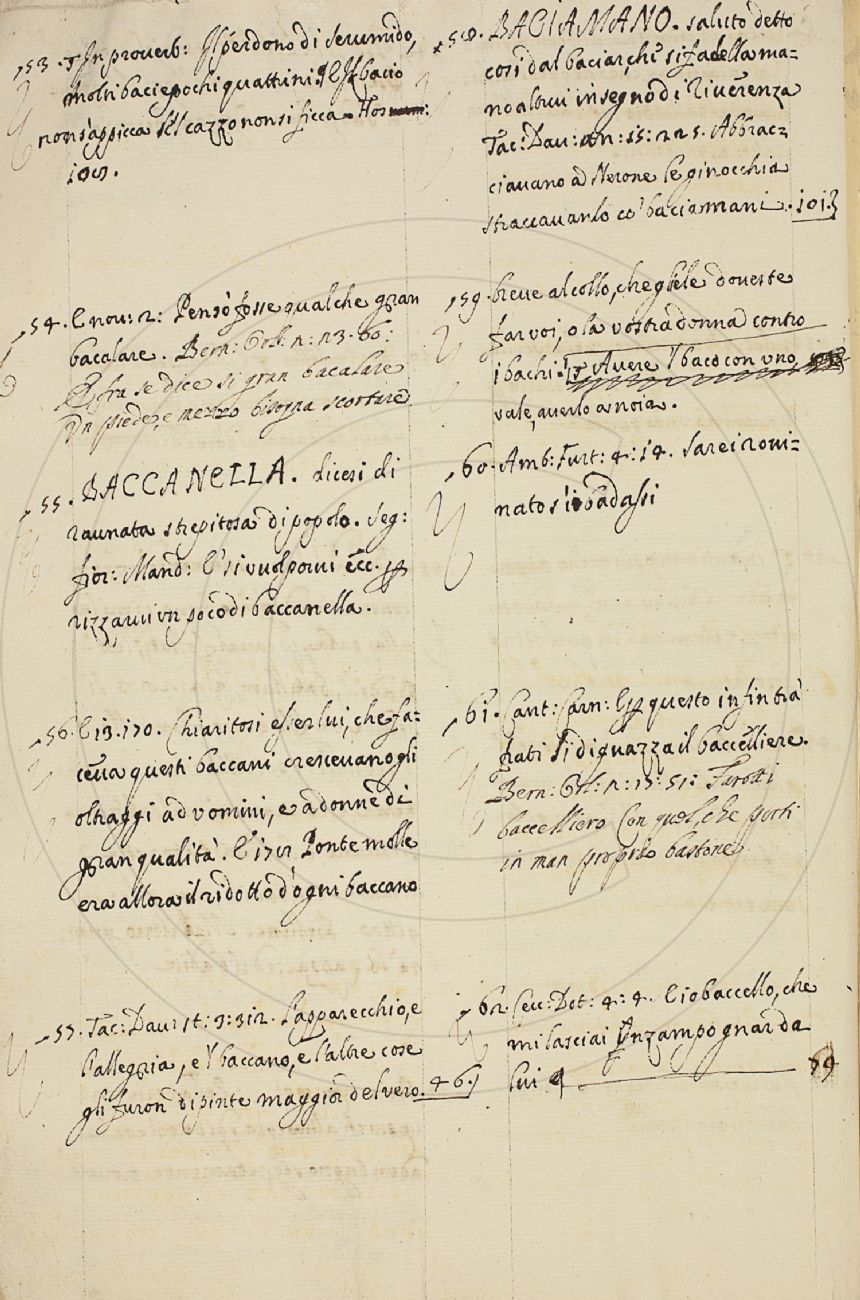 53. In proverb: Il perdono di Serumido,
molti baci e pochi quattrini. E Il bacio
non s'appicca se'l cazzo non si ficca.
109.
54. E nov: 2: Pensò fosse qualche gran
bacalare. Bern: Orl: 2: 23. 60:
E fra se dice si gran bacalare
Un piede, e mezzo bisogna scortare
55. BACCANELLA. dicesi di
raunata strepitosa di popolo. Seg:
fior: Mand: E' si vuol porvi ecc.
rizzarvi un poco di baccanella.
56. E 13. 170. Chiaritosi esser lui, che fa=
ceva questi baccani crescevano gli
oltraggi ad uomini, e a donne di
gran qualità. E 178 Ponte molle
era allora il ridotto d'ogni baccano
57. Tac: Dav: st: 3: 312. L'apparecchio, e
l'allegria, e 'l baccano, e l'altre cose
gli furon dipinte maggior del vero. 46.
58. BACIAMANO. saluto detto
così dal baciar, chi si fa della ma=
no altrui in segno di riverenza
Tac: Dav: an: 15: 225. Abbrac=
ciavano a Nerone le ginocchia
straccavanlo co' baciamani. 101.
59. breve al collo, che gliele doveste
far voi, o la vostra donna contro
i bachi. Avere 'l baco con uno,
vale, averlo a noia.
60. Amb: Furt: 4: 14. Sarei rovi=
nato s'io badassi
61. Cant: Carn: E questo infin tra
frati si diguazza il baccelliere.
Bern: Orl: 2: 15: 51: Farotti
baccelliero Con quel, che porti
in man proprio bastone
62. Cecc: Dot: 4: 4. E io baccello, che
mi lasciai Inzampognar da
lui
69